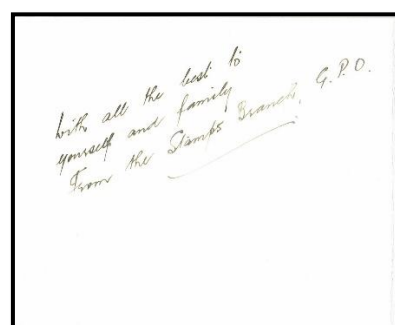 with all the best to
yourself and family
From the Stamps Branch, G.P.O.